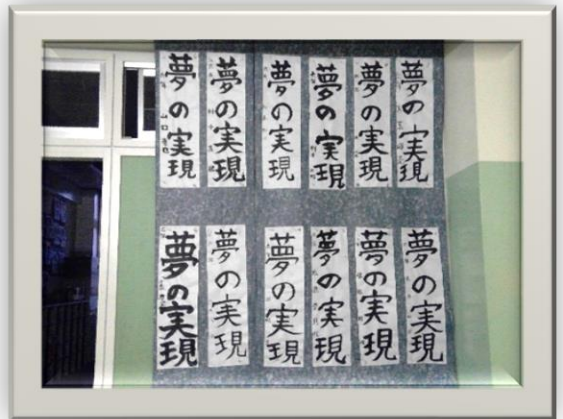 夢の実現
夢の実現
夢の実現
夢の実現
夢の実現
夢の実現
夢の実現
夢の実現
夢の実現
夢の実現
夢の実現
夢の実現